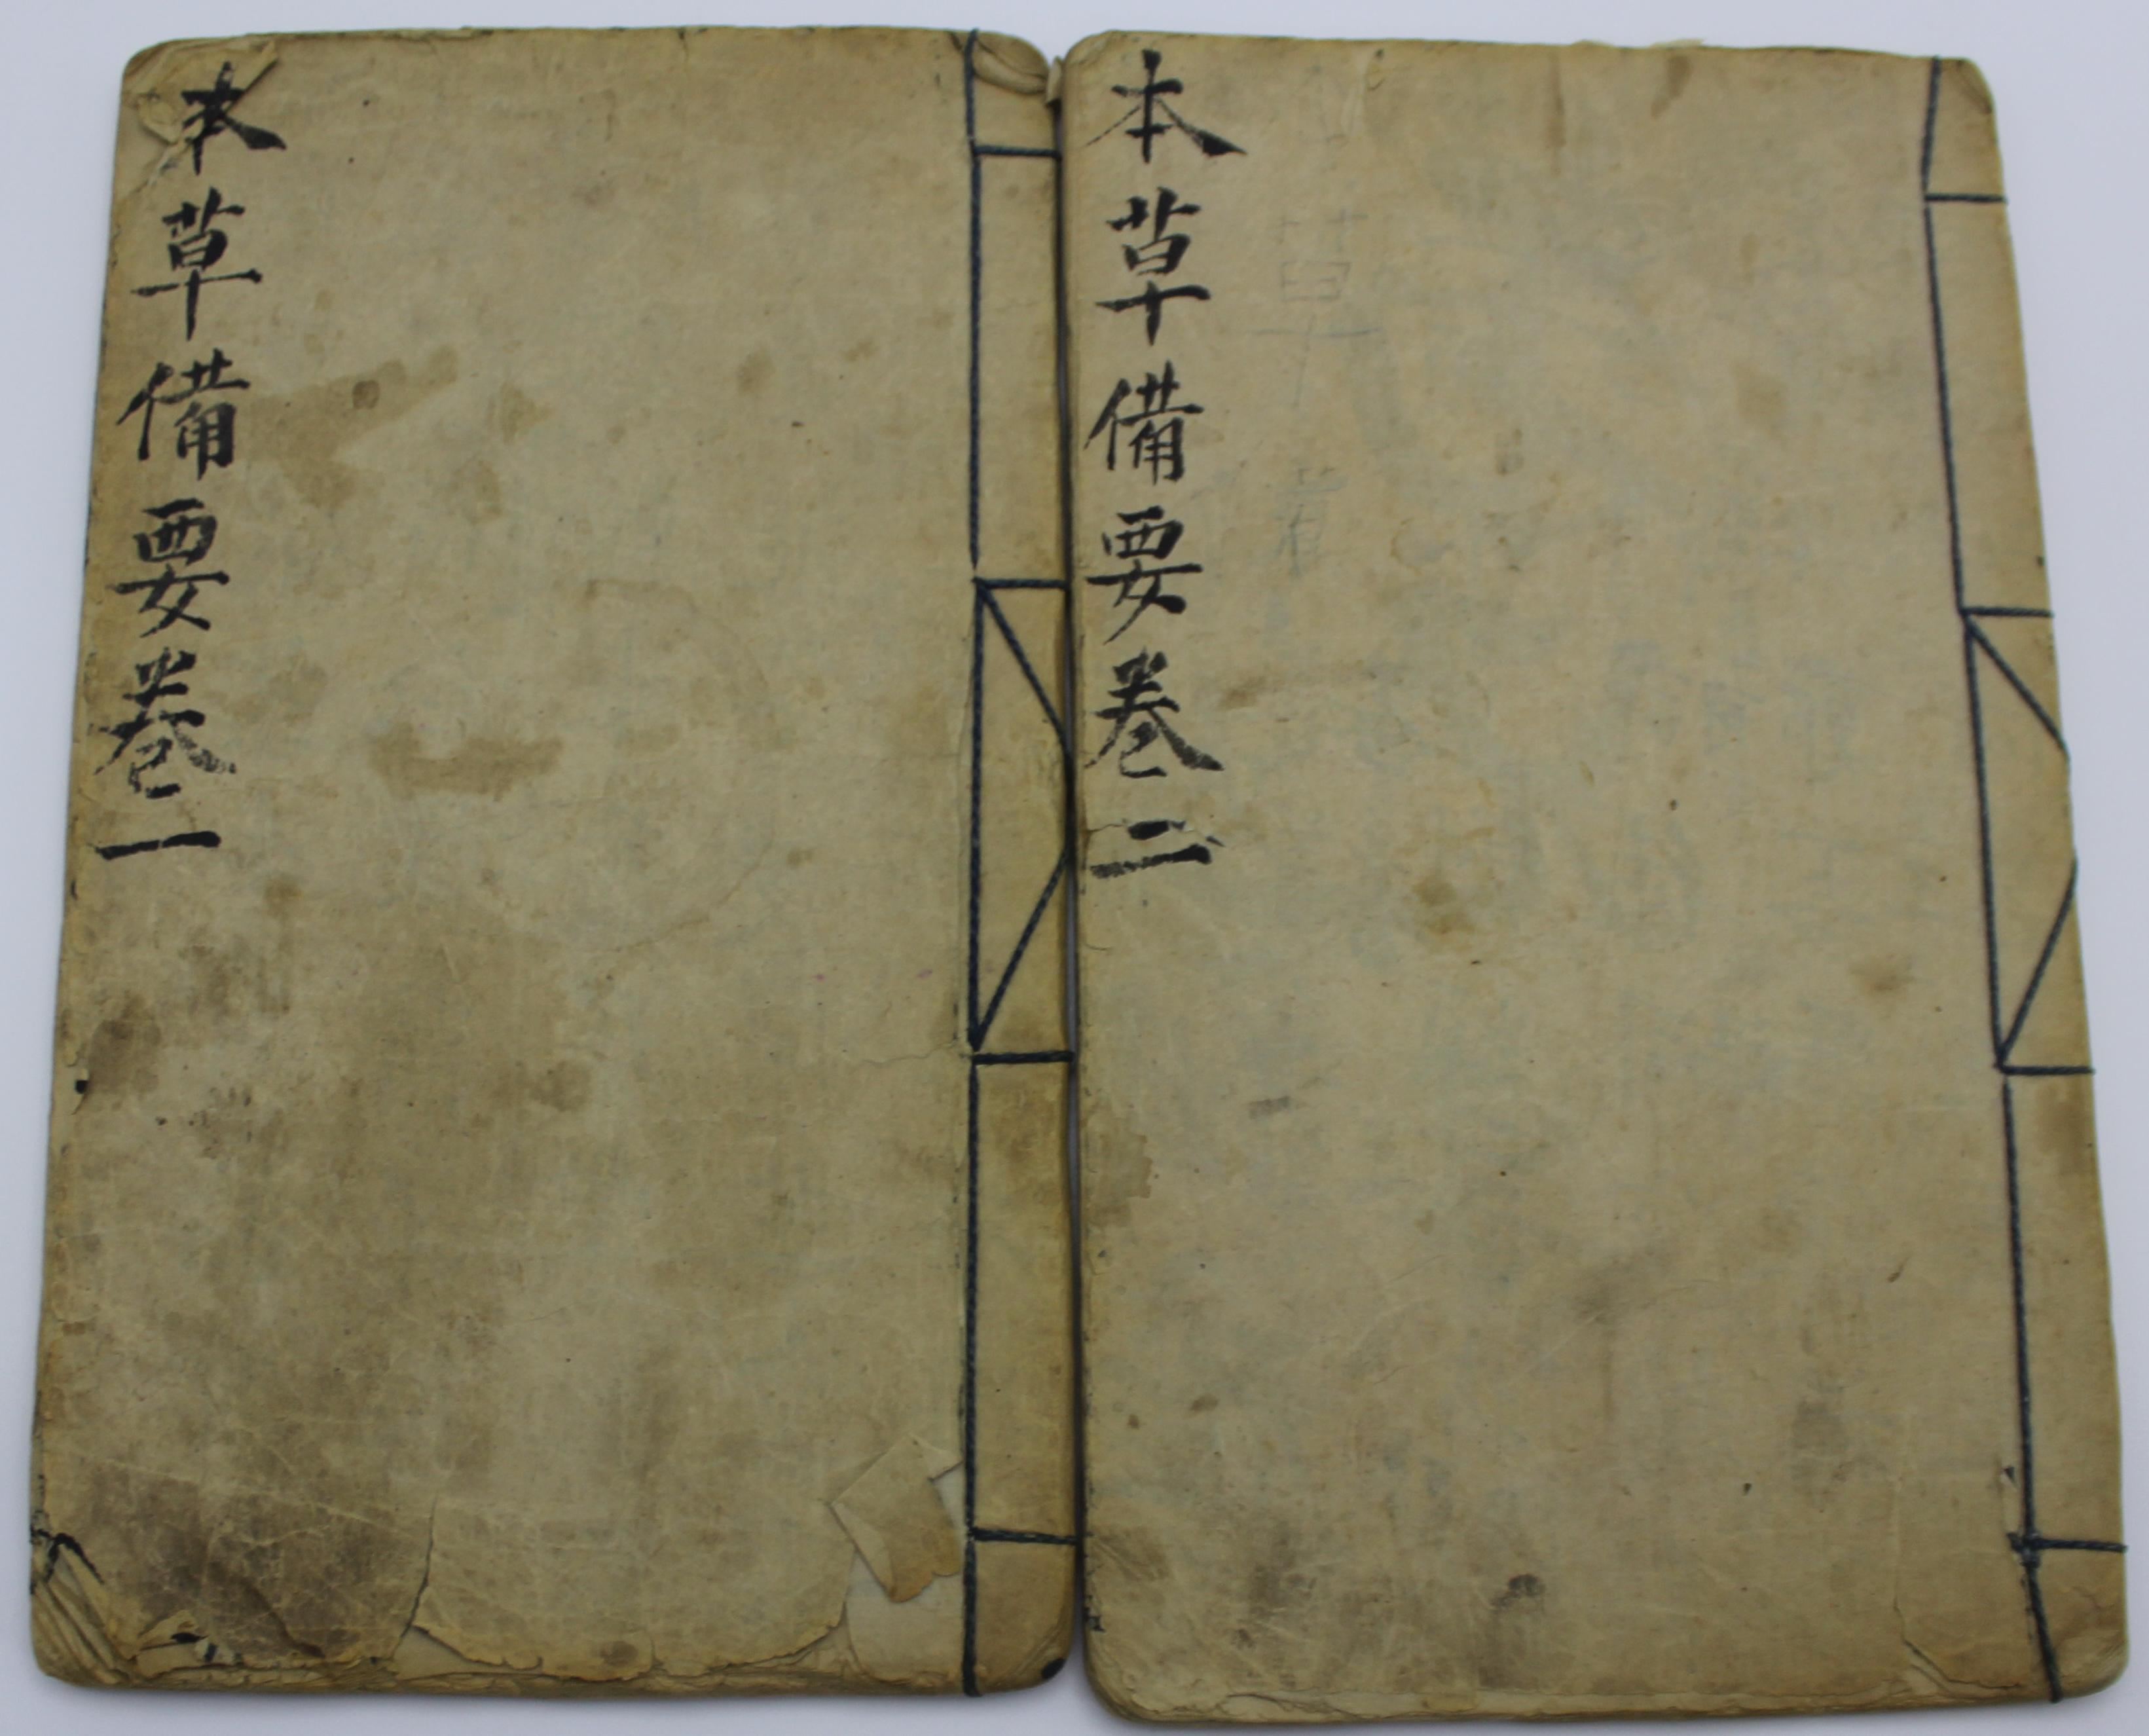 本草備要卷一
本草備要卷二